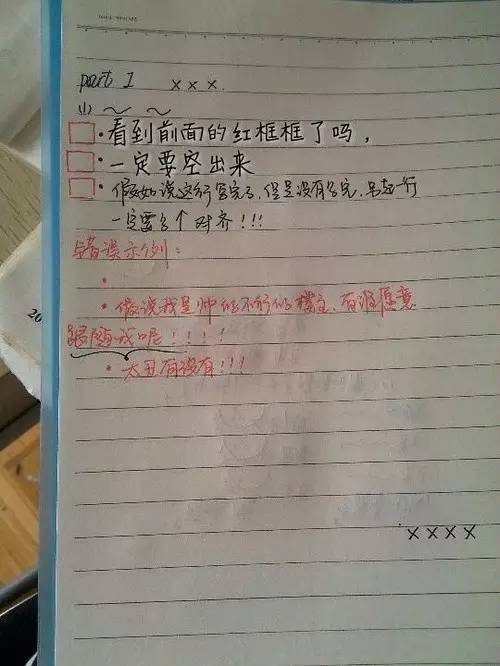 part 1 x x x.
(1) ~ ~
·看到前面的红框框了吗，
·一定要空出来
·假如说这行写完了，但是没有写完，另起一行
一定要多个对齐!!!
错误示例:
·
·假说我是帅的不行的楼主，有谁愿意
跟随我呢!!!!
·太丑有没有!!!
x x x x